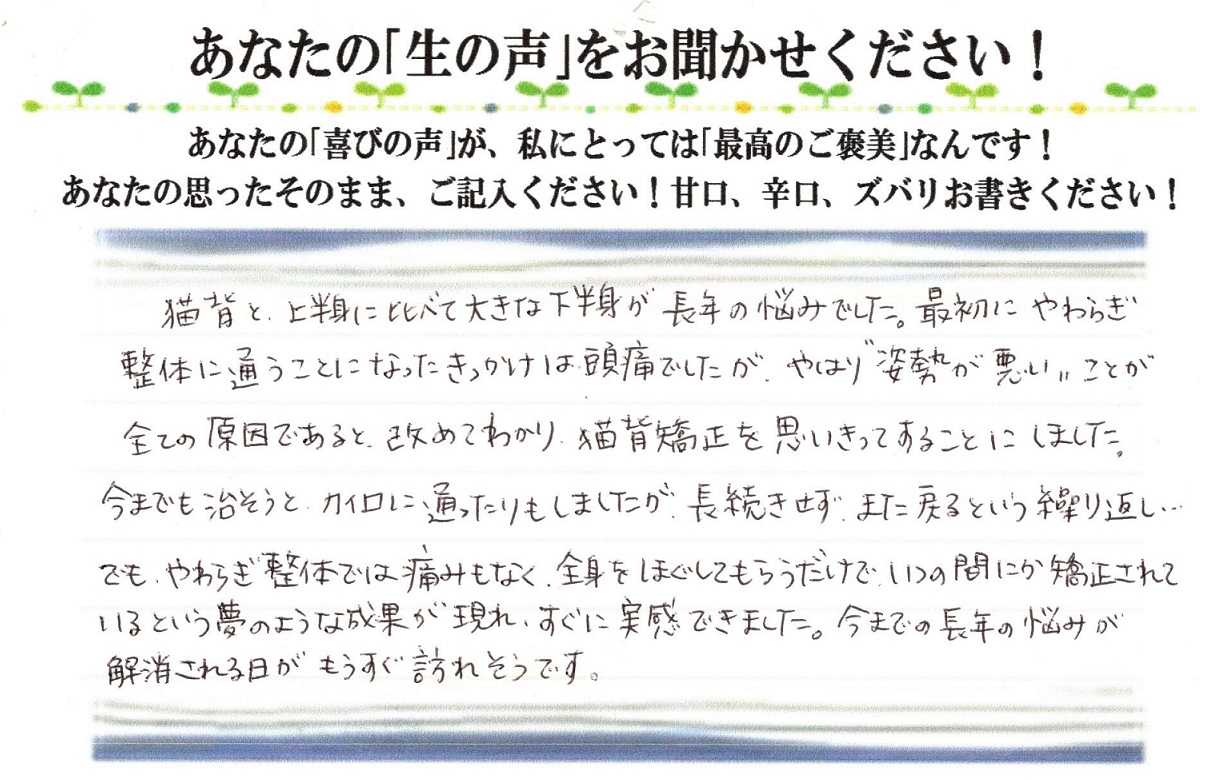 あなたの「生の声」をお聞かせください！
あなたの「喜びの声」が、私にとっては「最高のご褒美」なんです！
あなたの思ったそのまま、ご記入ください！甘口、辛口、ズバリお書きください！
猫背と、上半身に比べて大きな下半身が長年の悩みでした。最初にやわらぎ
整体に通うことになったきっかけは頭痛でしたが、やはり〝姿勢が悪い〟ことが
全ての原因であると、改めてわかり、猫背矯正を思いきってすることにしました。
今までも治そうと、カイロに通ったりもしましたが、長続きせず、また戻るという繰り返し…
でも、やわらぎ整体では痛みもなく、全身をほぐしてもらうだけで、いつの間にか矯正されて
いるという夢のような成果が現れ、すぐに実感できました。今までの長年の悩みが
解消される日がもうすぐ訪れそうです。